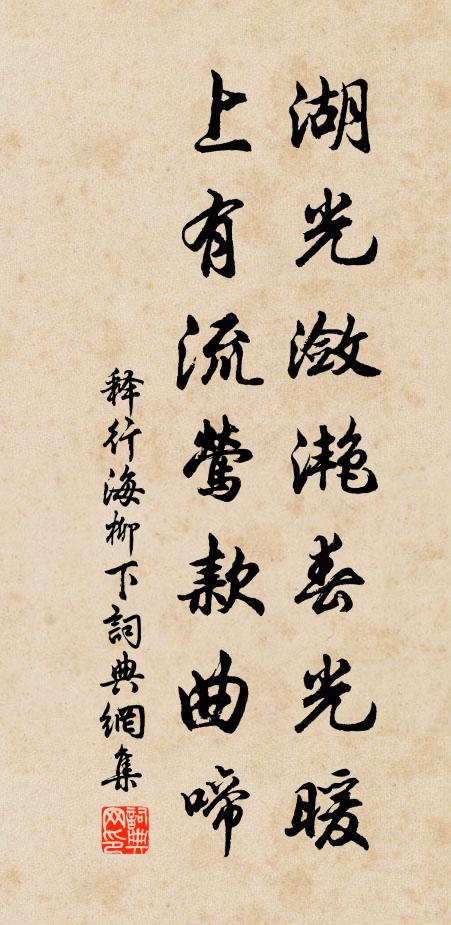 湖光潋滟春光暖
上有流莺款曲啼
释行海柳下詞典網集
詞典网印